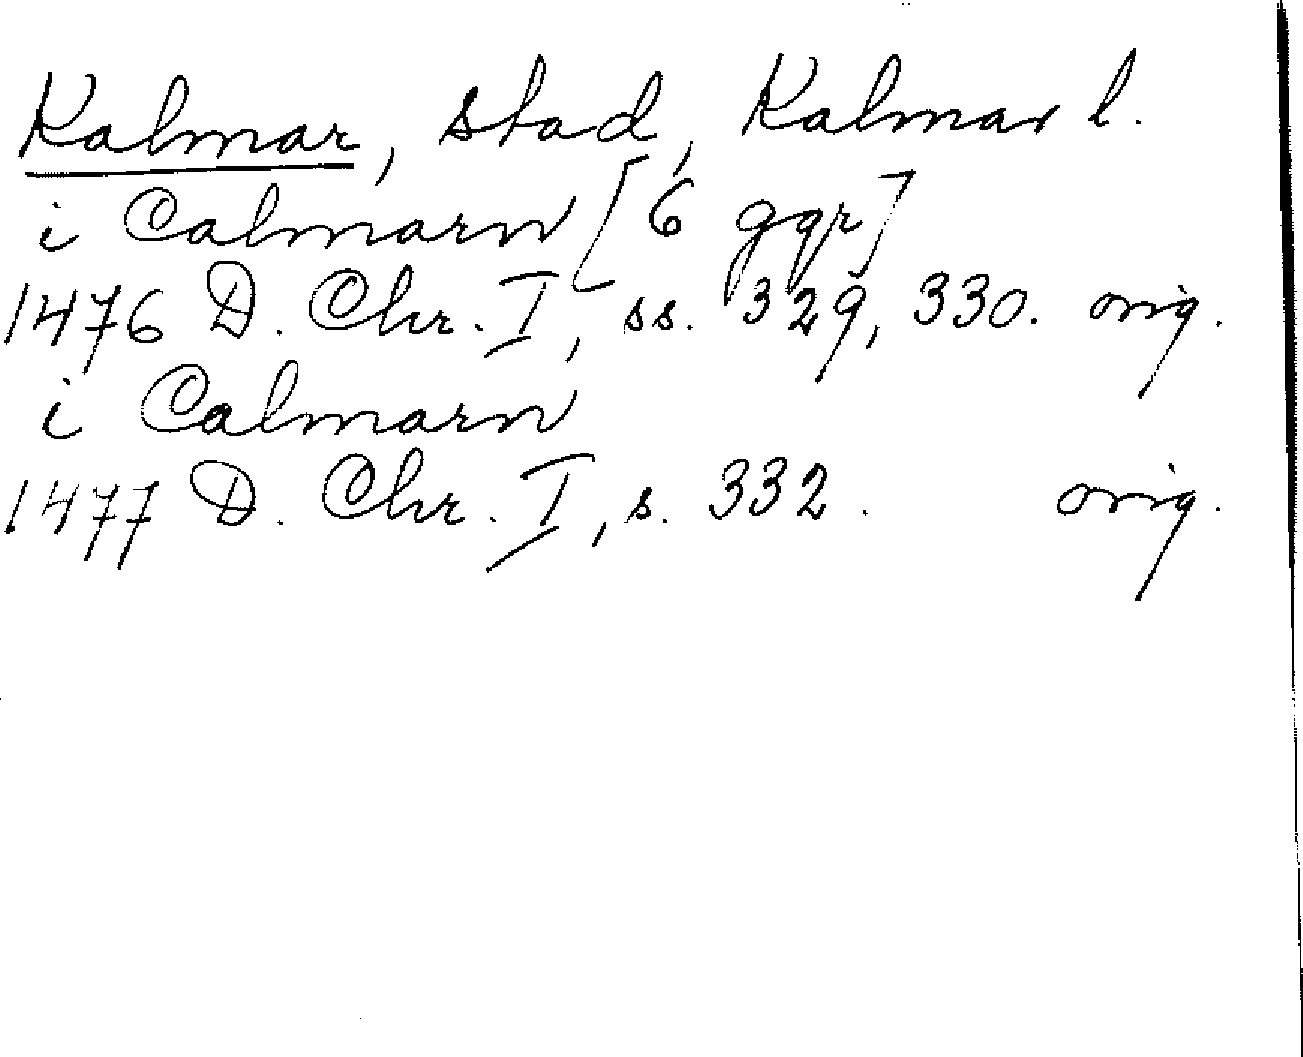 Kalmar, stad, Kalmar l.
i Calmarn [6 ggr]
1476 D. Chr. I, ss. 329, 330. orig.
i Calmarn
1477 D. Chr. I, s. 332. orig.